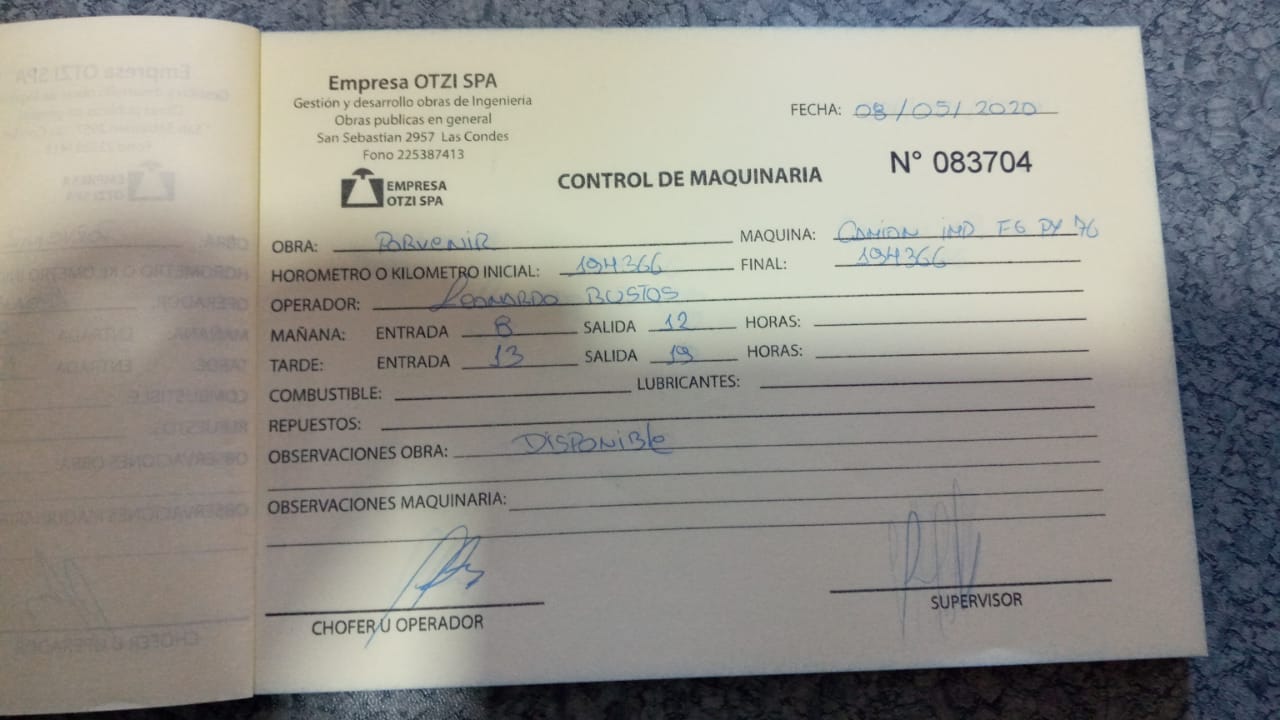 Empresa OTZI SPA
Gestión y desarrollo obras de Ingenieria
Obras publicas en general
San Sebastian 2957 Las Condes
Fono 225387413
EMPRESA
OTZI SPA
FECHA: 08/05/2020
CONTROL DE MAQUINARIA
N° 083704
OBRA: Porvenir MAQUINA: Camion imp FG PY 76
HOROMETRO O KILOMETRO INICIAL: 194366 FINAL: 194366
OPERADOR: Leonardo Bustos
MAÑANA: ENTRADA 8 SALIDA 12 HORAS:
TARDE: ENTRADA 13 SALIDA 19 HORAS:
COMBUSTIBLE: LUBRICANTES:
REPUESTOS:
OBSERVACIONES OBRA: Disponible
OBSERVACIONES MAQUINARIA:
CHOFER U OPERADOR
SUPERVISOR